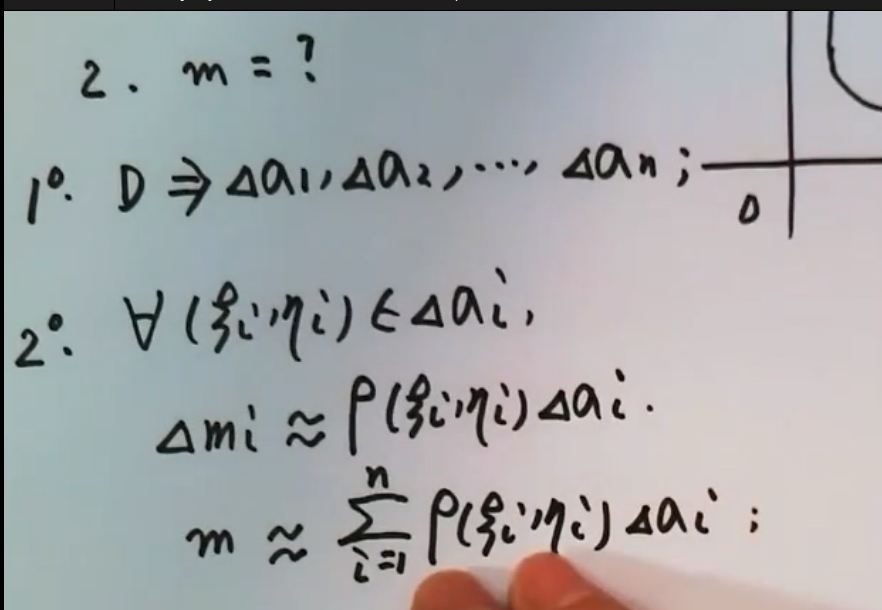 2. m = ?
1°. D ⇒ Δa₁, Δa₂, ⋯, Δaₙ;
0
2°. ∀(ξᵢ, ηᵢ) ∈ Δaᵢ,
Δmᵢ ≈ ρ(ξᵢ, ηᵢ)Δaᵢ.
m ≈ ∑ᵢ₌₁ⁿ ρ(ξᵢ, ηᵢ)Δaᵢ;